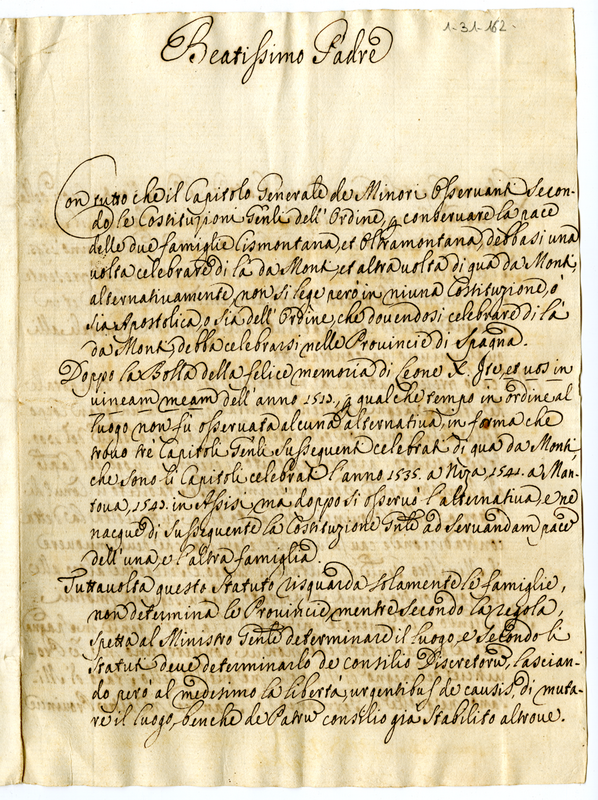 1-31-162.
Beatissimo Padre
Con tutto che il Capitolo Generale de Minori Osservanti Secon-
do le Costituzioni Gen̄li dell'Ordine, p conservare la pace
delle due famiglie Cismontana, et Oltramontana, debbasi una
volta celebrare di là da Monti, et altra volta di quà da Monti,
alternativamente, non si lege però in niuna Costituzione, ò
sia Apostolica, o sia dell'Ordine, che dovendosi celebrare di là
da Monti, debba celebrarsi nelle Provincie di Spagna.
Doppo la Bolla della felice memoria di Leone X. Ite, et vos in
vineam meam dell'anno 1517, p qualche tempo in ordine al
luogo non fù osservata alcuna alternativa, in forma che
trovo tre Capitoli Gen̄li sussequenti celebrati di quà da Monti,
che sono li Capitoli celebrati l'anno 1535. a Niza, 1541. a Man-
tova, 1547. in Assisi, mà doppo si osservò l'alternativa, e ne
nacque di sussequente la Costituzione Gn̄le ad servandam pace
dell'una, e l'altra famiglia.
Tuttavolta questo Statuto risguarda solamente le famiglie,
non determina le Provincie, mentre secondo la regola,
spetta al Ministro Gen̄le determinare il luogo, e secondo li
statuti deve determinarlo de consilio Discretorū, lascian-
do però al medesimo la libertà, urgentibus de causis, di muta-
re il luogo, benche de Patrū consilio già stabilito altrove.